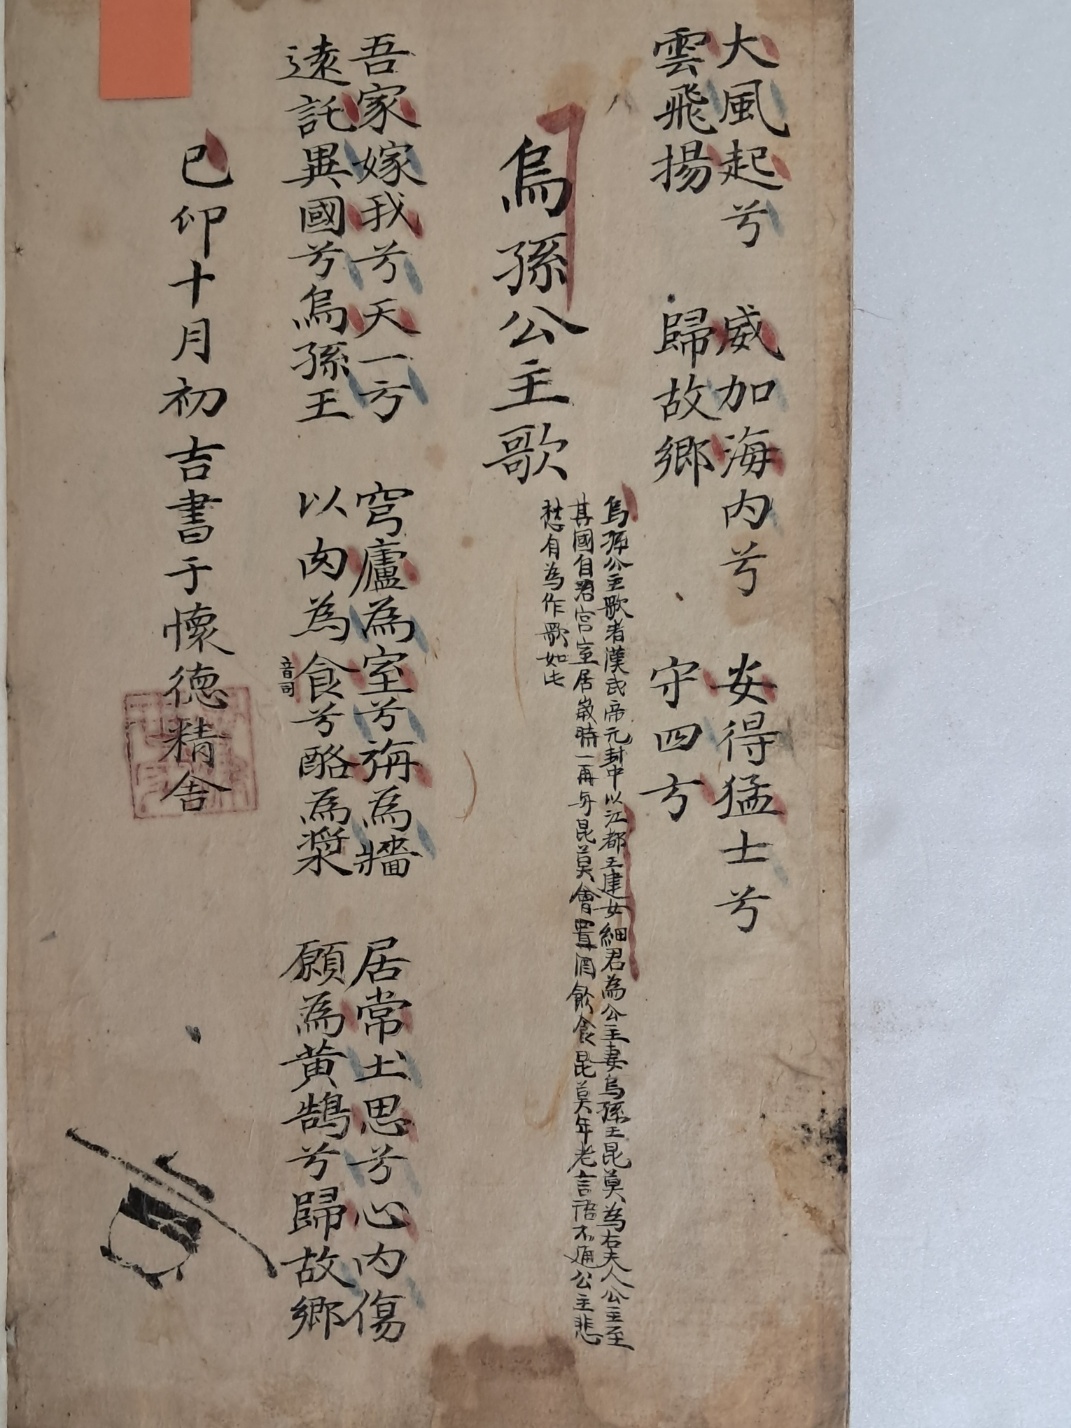 大風起兮
雲飛揚
威加海内兮
歸故鄉
安得猛士兮
守四方
烏孫公主歌
烏孫公主歌者漢武帝元封中以江都王建女細君為公主妻烏孫王昆莫為右夫人公主至
其國自宮室居歲時一再与昆莫會置酒飲食昆莫年老言語不通公主悲
愁有為作歌如此
吾家嫁我兮天一方
遠託異國兮烏孫王
穹廬為室兮旃為牆
以肉為食兮酪為漿
音司
居常土思兮心内傷
願為黃鵠兮歸故鄉
己卯十月初吉書于懷德精舍